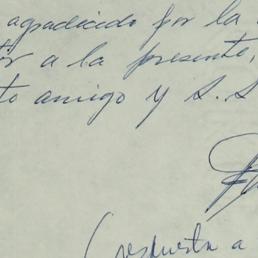 agradecido por la
a la presente,
to amigo y S. S.
(respuesta a